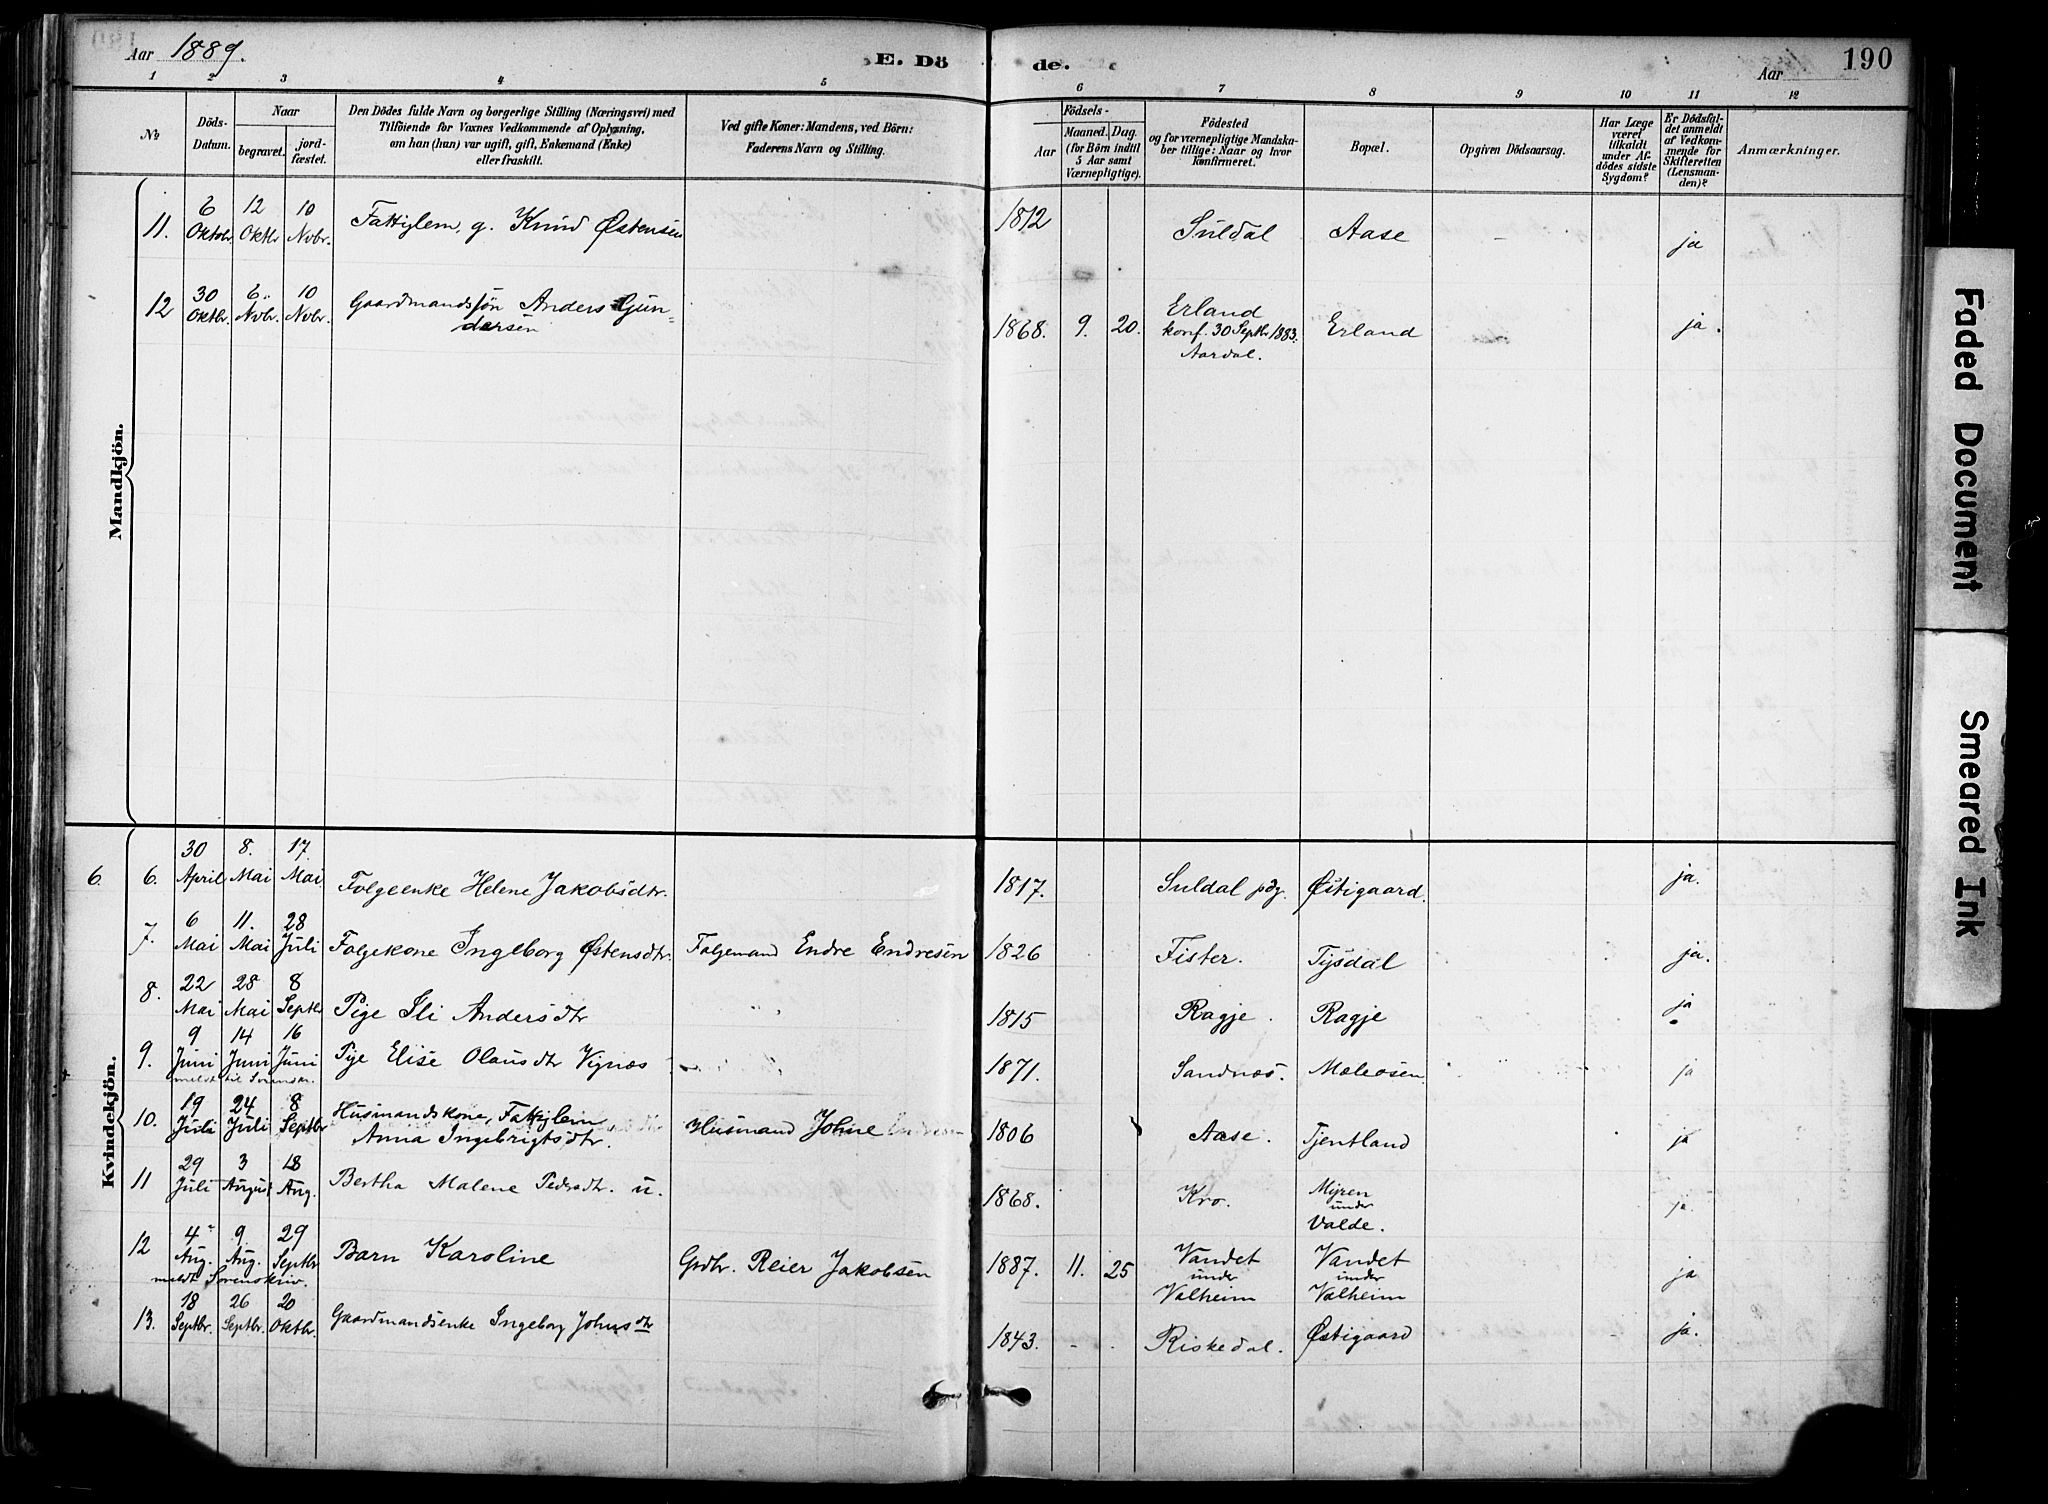 Aar 1889. E. Dö de. Aar 190
1 2 3 4 5 6 7 8 9 10 11 12
№
Döds-Datum.
Naar
begravet.
jordfæstet.
Den Dödes fulde Navn og borgerlige Stilling (Næringsvei) med
Tilföiende for Voxnes Vedkommende af Oplysning,
om han (hun) var ugift, gift, Enkemand (Enke)
eller fraskilt.
Ved gifte Koner: Mandens, ved Börn:
Faderens Navn og Stilling.
Födsels-
Aar
Maaned. Dag.
(for Börn indtil
5 Aar samt
Værnepligtige).
Födested
og for værnepligtige Mandska-
ber tillige: Naar og hvor
konfirmeret.
Bopæl.
Opgiven Dödsaarsag.
Har Læge
været
tilkaldt
under Af-
dödes sidste
Sygdom?
Er Dödsfal-
det anmeldt
af Vedkom-
mende for
Skifteretten
(Lensman-
den)?
Anmærkninger.
Mandkjön.
11. 6 Oktbr. 12 Oktbr 10 Novbr. Fattiglem, g. Knud Østensen 1812 Suldal Aase - ja
12 30 Oktbr. 6. Nvbr. 10 Nvbr. Gaardmandssøn Anders Gun-
dersen 1868. 9. 20. Erland
konf. 30 Septbr. 1883.
Aardal. Erland ja.
Kvindekjön.
6. 6. 30 April 8. Mai 17. Mai Folgeenke Helene Jakobsdtr. 1817. Suldal pdg. Østigaard. ja.
7. 6 Mai 11. Mai 28 Juli Folgekone Ingleborg Østensdtr. Folgemand Endre Endresen 1826 Fister. Tysdal ja.
8. 22 Mai 28 Mai 8 Septbr Pige Sli Andersdtr " 1815 Ragje. Ragje ja
9. 9 Juni 14 Juni 16 Juni Pige Elise Olausdtr Vignæs 1871. Sandnæs. Meleosen ja
meldt til Sorenskr.
10. 19 Juli 24 Juli 8 Septbr Husmandskone, Fattiglem
Anna Ingebrigtsdtr. Husmand Johne 1806 Aase. Tjentland ja
11 29 Juli 3 August 18 Aug. Bertha Malene Pedersdtr. u. 1868. Kro. Myren
under
Valde. ja.
12 4 Aug. 9 Aug. 29 Septbr Barn Karoline Grdbr. Reier Jakobsen 1887. 11. 25 Vandet
under
Valheim Vandet
under
Valheim ja
meldt Sorenskriv.
13. 18 Septbr. 26 Septbr. 20 Oktbr. Gaardmandsenke Ingeborg Johnsdtr 1843. - . Riskedal. Østigaard ja.
Faded Document
Smeared Ink